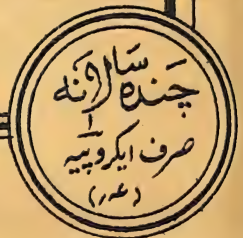 چندہ سالانہ
صرف ایکروپیہ
(عہ/)